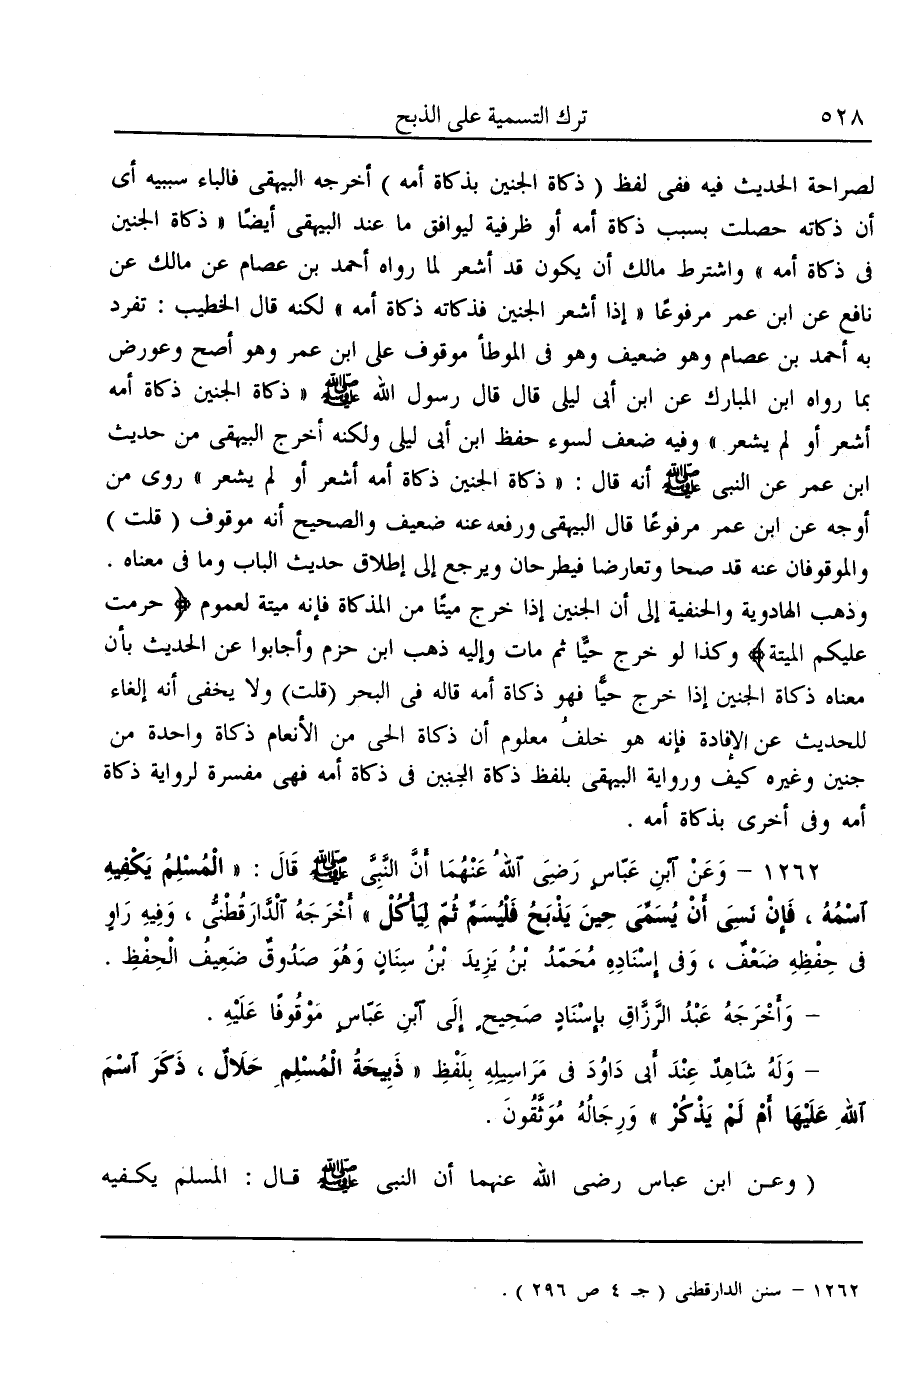 ٥٢٨ ترك التسمية على الذبح
لصراحة الحديث فيه ففى لفظ ( ذكاة الجنين بذكاة أمه ) أخرجه البيهقى فالباء سببيه أى
أن ذكاته حصلت بسبب ذكاة أمه أو ظرفية ليوافق ما عند البيهقى أيضًا « ذكاة الجنين
فى ذكاة أمه » واشترط مالك أن يكون قد أشعر لما رواه أحمد بن عصام عن مالك عن
نافع عن ابن عمر مرفوعًا « إذا أشعر الجنين فذكاته ذكاة أمه » لكنه قال الخطيب : تفرد
به أحمد بن عصام وهو ضعيف وهو فى الموطأ موقوف على ابن عمر وهو أصح وعورض
بما رواه ابن المبارك عن ابن أبى ليلى قال قال رسول الله ﷺ « ذكاة الجنين ذكاة أمه
أشعر أو لم يشعر » وفيه ضعف لسوء حفظ ابن أبى ليلى ولكنه أخرج البيهقى من حديث
ابن عمر عن النبى ﷺ أنه قال : « ذكاة الجنين ذكاة أمه أشعر أو لم يشعر » روى من
أوجه عن ابن عمر مرفوعًا قال البيهقى ورفعه عنه ضعيف والصحيح أنه موقوف ( قلت )
والموقوفان عنه قد صحا وتعارضا فيطرحان ويرجع إلى إطلاق حديث الباب وما فى معناه .
وذهب الهادوية والحنفية إلى أن الجنين إذا خرج ميتًا من المذكاة فإنه ميتة لعموم ﴿ حرمت
عليكم الميتة﴾ وكذا لو خرج حيًّا ثم مات وإليه ذهب ابن حزم وأجابوا عن الحديث بأن
معناه ذكاة الجنين إذا خرج حيًّا فهو ذكاة أمه قاله فى البحر (قلت) ولا يخفى أنه إلغاء
للحديث عن الإفادة فإنه هو خلفُ معلوم أن ذكاة الحى من الأنعام ذكاة واحدة من
جنين وغيره كيف ورواية البيهقى بلفظ ذكاة الجنين فى ذكاة أمه فهى مفسرة لرواية ذكاة
أمه وفى أخرى بذكاة أمه .
١٢٦٢ – وَعَنْ آبْنِ عَبَّاسٍ رَضِىَ آللهُ عَنْهُمَا أَنَّ النَّبِىَّ ﷺ قَالَ : « الْمُسْلِمُ يَكْفِيهِ
آسْمُهُ ، فَإِنْ نَسِىَ أَنْ يُسَمِّىَ حِينَ يَذْبَحُ فَلْيُسَمِّ ثُمَّ لِيَأْكُلْ » أَخْرَجَهُ آلْدَّارَقُطْنِىُّ ، وَفِيهِ رَاوٍ
فِى حِفْظِهِ ضَعْفٌ ، وَفِى إِسْنَادِهِ مُحَمَّدُ بْنُ يَزِيدَ بْنُ سِنَانٍ وَهُوَ صَدُوقٌ ضَعِيفُ الْحِفْظِ .
– وَأَخْرَجَهُ عَبْدُ الرَّزَّاقِ بِإِسْنَادٍ صَحِيحٍ إِلَى آبْنِ عَبَّاسٍ مَوْقُوفًا عَلَيْهِ .
– وَلَهُ شَاهِدٌ عِنْدَ أَبِى دَاوُدَ فِى مَرَاسِيلِهِ بِلَفْظِ « ذَبِيحَةُ الْمُسْلِمِ حَلَالٌ ، ذَكَرَ آسْمَ
آللهِ عَلَيْهَا أَمْ لَمْ يَذْكُرْ » وَرِجَالُهُ مُوَثَّقُونَ .
( وعن ابن عباس رضى الله عنهما أن النبى ﷺ قال : المسلم يكفيه
١٢٦٢ – سنن الدارقطنى ( جـ ٤ ص ٢٩٦ ) .